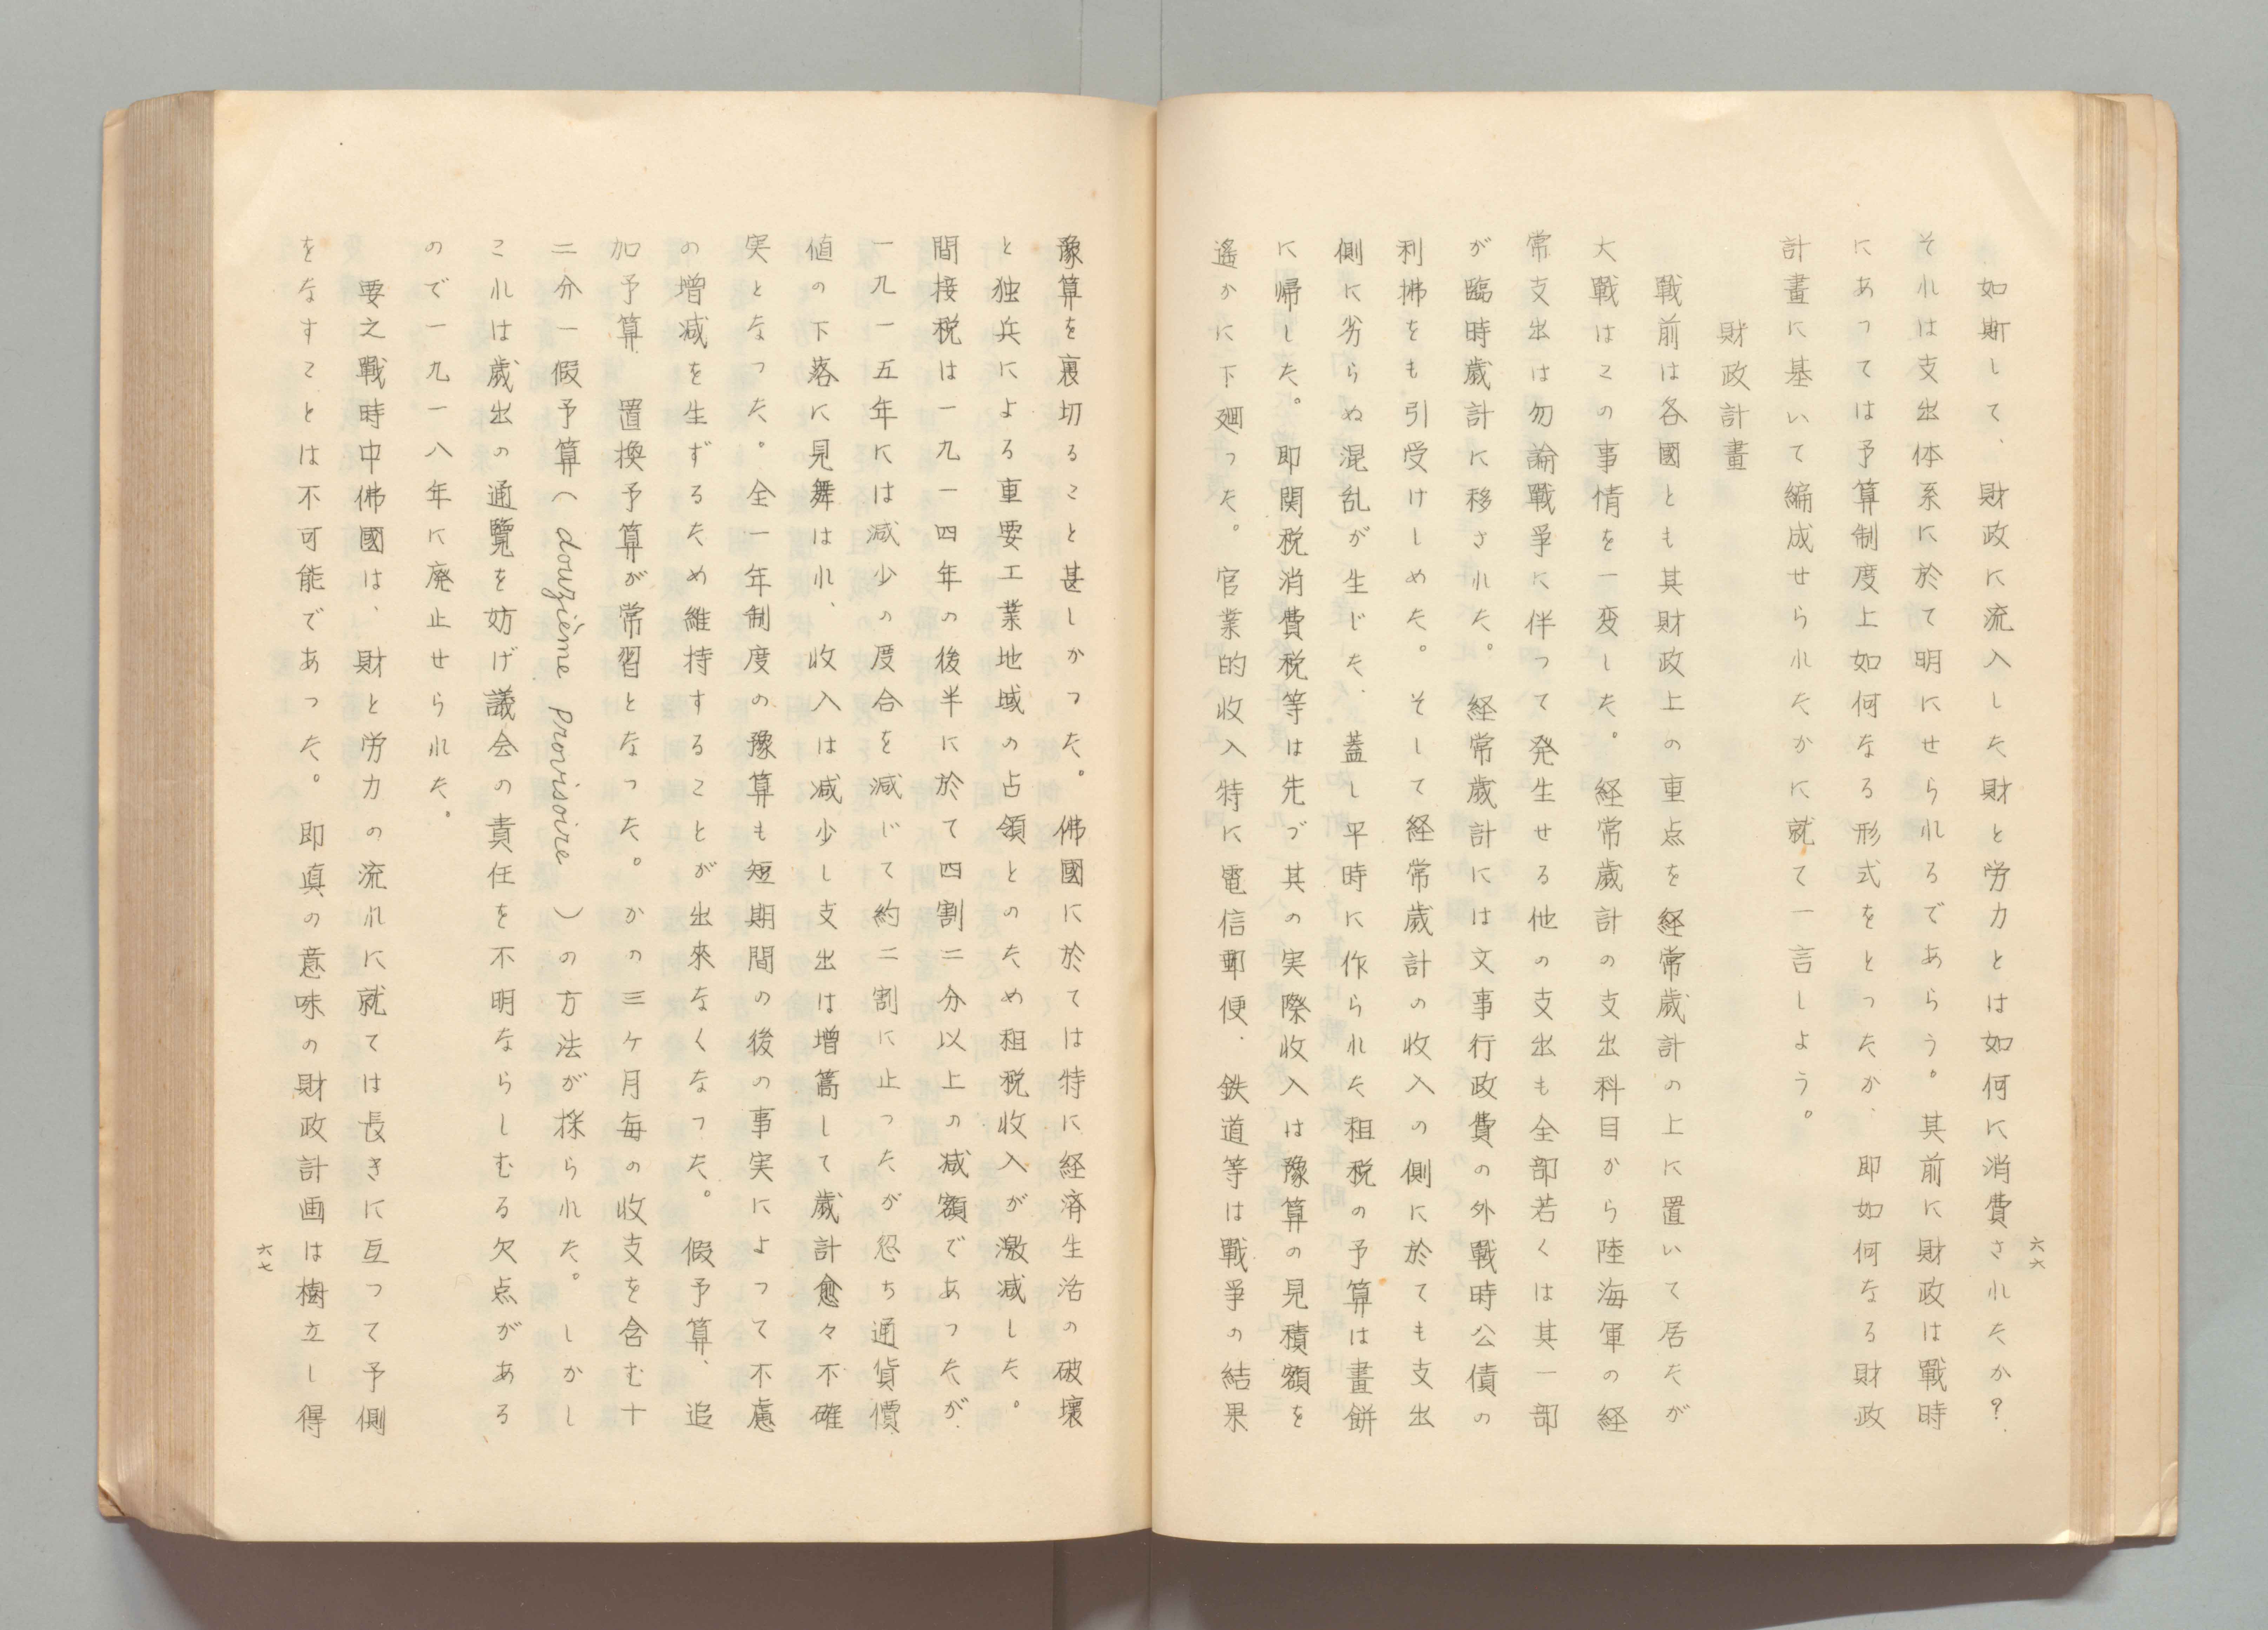 六六
如斯して、財政に流入した財と労力とは如何に消費されたか?
それは支出体系に於て明にせられるであらう。其前に財政は戰時
にあつては予算制度上如何なる形式をとつたか、即如何なる財政
計畫に基いて編成せられたかに就て一言しよう。
財政計畫
戰前は各國とも其財政上の重点を経常歳計の上に置いて居たが
大戰はこの事情を一変した。経常歳計の支出科目から陸海軍の経
常支出は勿論戰爭に伴つて発生せる他の支出も全部若くは其一部
が臨時歳計に移された。経常歳計には文事行政費の外戰時公債の
利拂をも引受けしめた。そして経常歳計の收入の側に於ても支出
側に劣らぬ混乱が生じた.蓋し平時に作られた租税の予算は畫餅
に帰した。即関税消費税等は先づ其の実際收入は豫算の見積額を
遙かに下廻つた。官業的收入特に電信郵便.鉄道等は戰爭の結果
豫算を裏切ること甚しかつた。佛國に於ては特に経済生活の破壞
と独兵による重要工業地域の占領とのため租税收入が激减した。
間接税は一九一四年の後半に於て四割二分以上の减額であつたが
一九一五年には减少の度合を减じて約二割に止つたが忽ち通貨價
値の下落に見舞はれ、收入は减少し支出は增嵩して歳計愈々不確
実となつた。全一年制度の豫算も短期間の後の事実によつて不慮
の增减を生ずるため維持することが出來なくなつた。假予算、追
加予算、置換予算が常習となつた。かの三ヶ月毎の收支を含む十
二分一假予算(douzième provisoire)の方法が採られた。しかし
これは歳出の通覽を妨げ議会の責任を不明ならしむる欠点がある
ので一九一八年に廃止せられた。
要之戰時中佛國は、財と労力の流れに就ては長きに亙つて予側
をなすことは不可能であつた。即真の意味の財政計画は樹立し得
六七